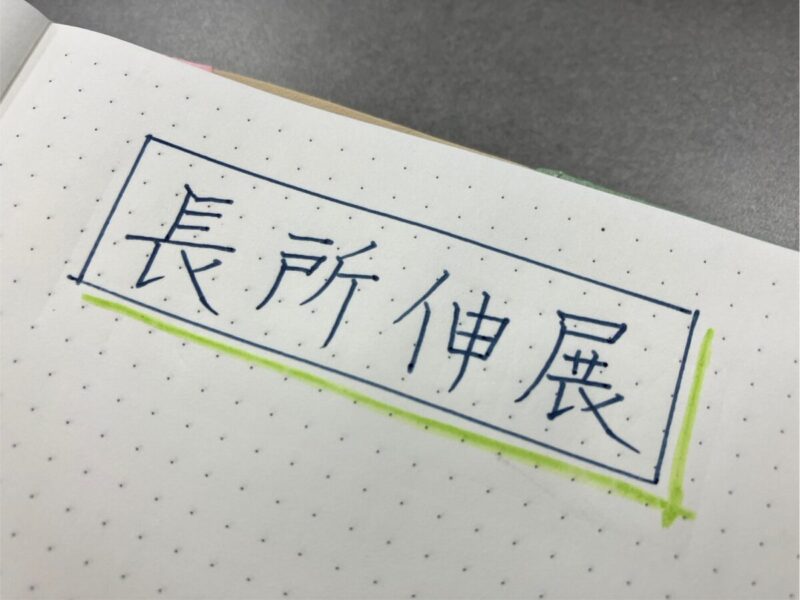 長所伸展